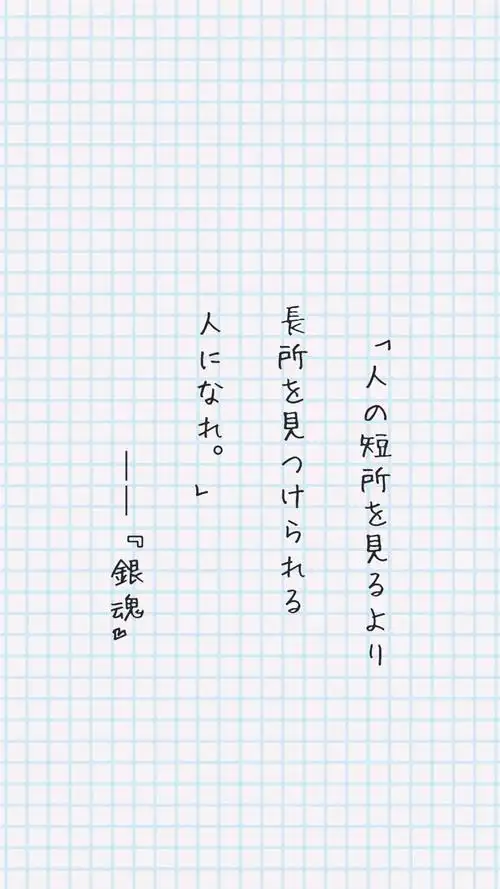 「人の短所を見るより
長所を見つけられる
人になれ。」
——『銀魂』